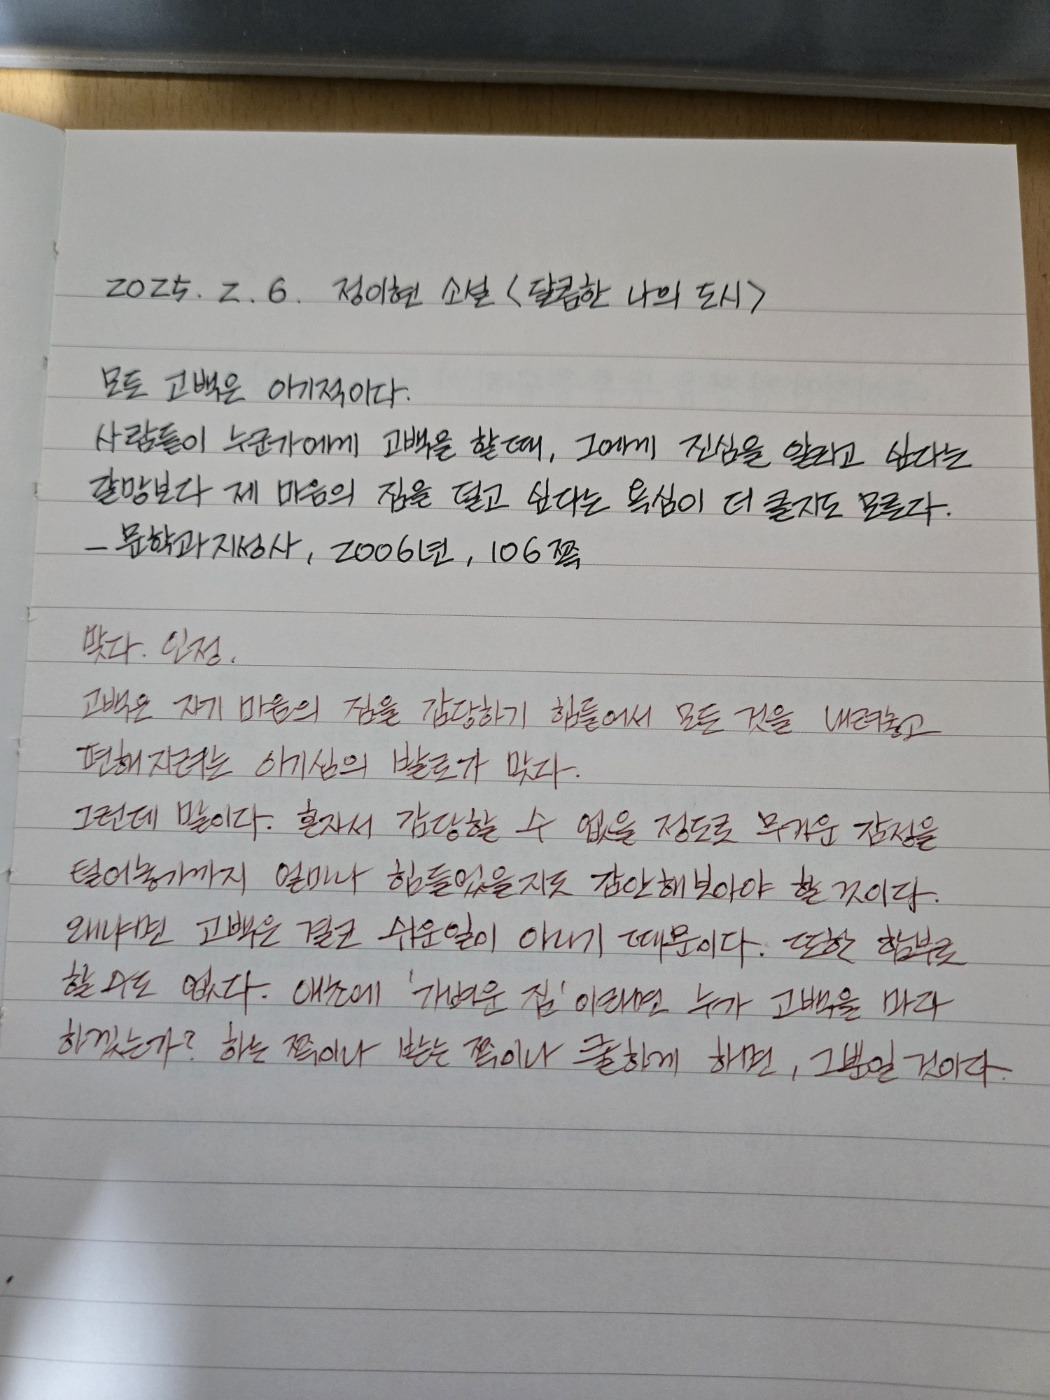 2025. 2. 6. 정이현 소설 <달콤한 나의 도시>
모든 고백은 이기적이다.
사람들이 누군가에게 고백을 할 때, 그에게 진심을 알리고 싶다는
갈망보다 제 마음의 짐을 덜고 싶다는 욕심이 더 클지도 모른다.
– 문학과지성사, 2006년, 106쪽
맞다. 인정.
고백은 자기 마음의 짐을 감당하기 힘들어서 모든 것을 내려놓고
편해지려는 이기심의 발로가 맞다.
그런데 말이다. 혼자서 감당할 수 없을 정도로 무거운 감정을
털어놓기까지 얼마나 힘들었을지도 감안해보아야 할 것이다.
왜냐면 고백은 결코 쉬운일이 아니기 때문이다. 또한 함부로
할 수도 없다. 애초에 '가벼운 짐'이라면 누가 고백을 마다
하겠는가? 하는 쪽이나 받는 쪽이나 쿨하게 하면, 그뿐일 것이다.